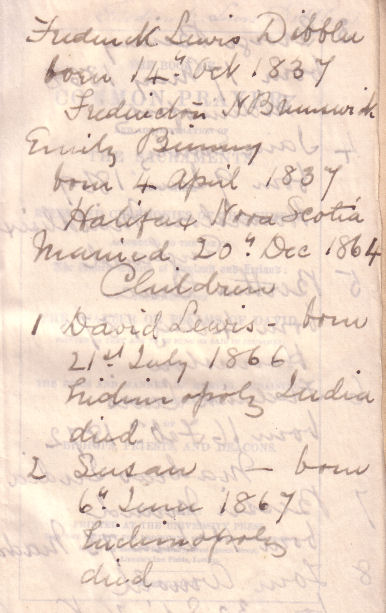 Frederick Lewis Dibblee
born 14th Oct 1837
Fredericton N Brunswick
Emily Binney
born 4 April 1837
Halifax Nova Scotia
Married 20th Dec 1864
Children
1 David Lewis - born
21st July 1866
Trichinopoly India
died
2 Susan - born
6th June 1867
Trichinopoly
died